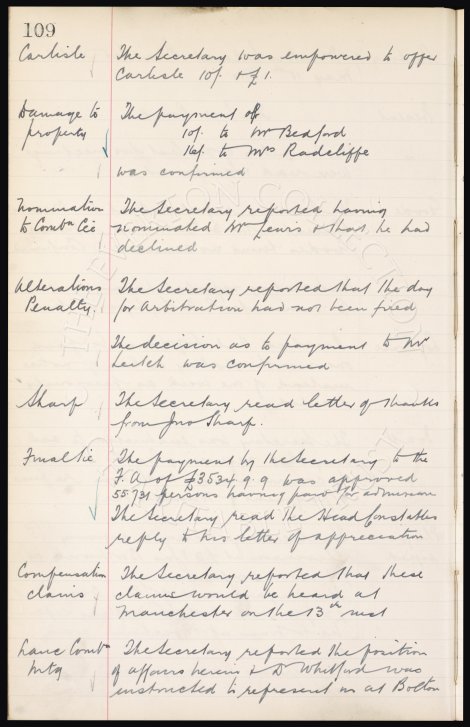 109
Carlisle The Secretary was empowered to offer
Carlisle 10/- & £1.
Damage to The payment of
property 10/- to Mr Bedford
to Mrs Radcliffe
was confirmed
Nomination The Secretary reported having
to Combn Cee nominated Mr Lewis & that he had
declined
Alterations The Secretary reported that the day
Penalty for Arbitration had not been fixed
The decision as to payment to Mr
Leitch was confirmed
Sharp The Secretary read letter of thanks
from Jno Sharp.
Final Tie The payment by the Secretary to the
F.A of £3534.9.9 was approved
55.731 persons having paid for admission
The Secretary read the Head Constables
reply to his letter of appreciation
Compensation The Secretary reported that these
claims claims would be heard at
Manchester on the 13th inst
Lanc Combn The Secretary reported the position
Mtg of affairs herein & D Whitford was
instructed to represent us at Bolton
THE EVERTON COLLECTION